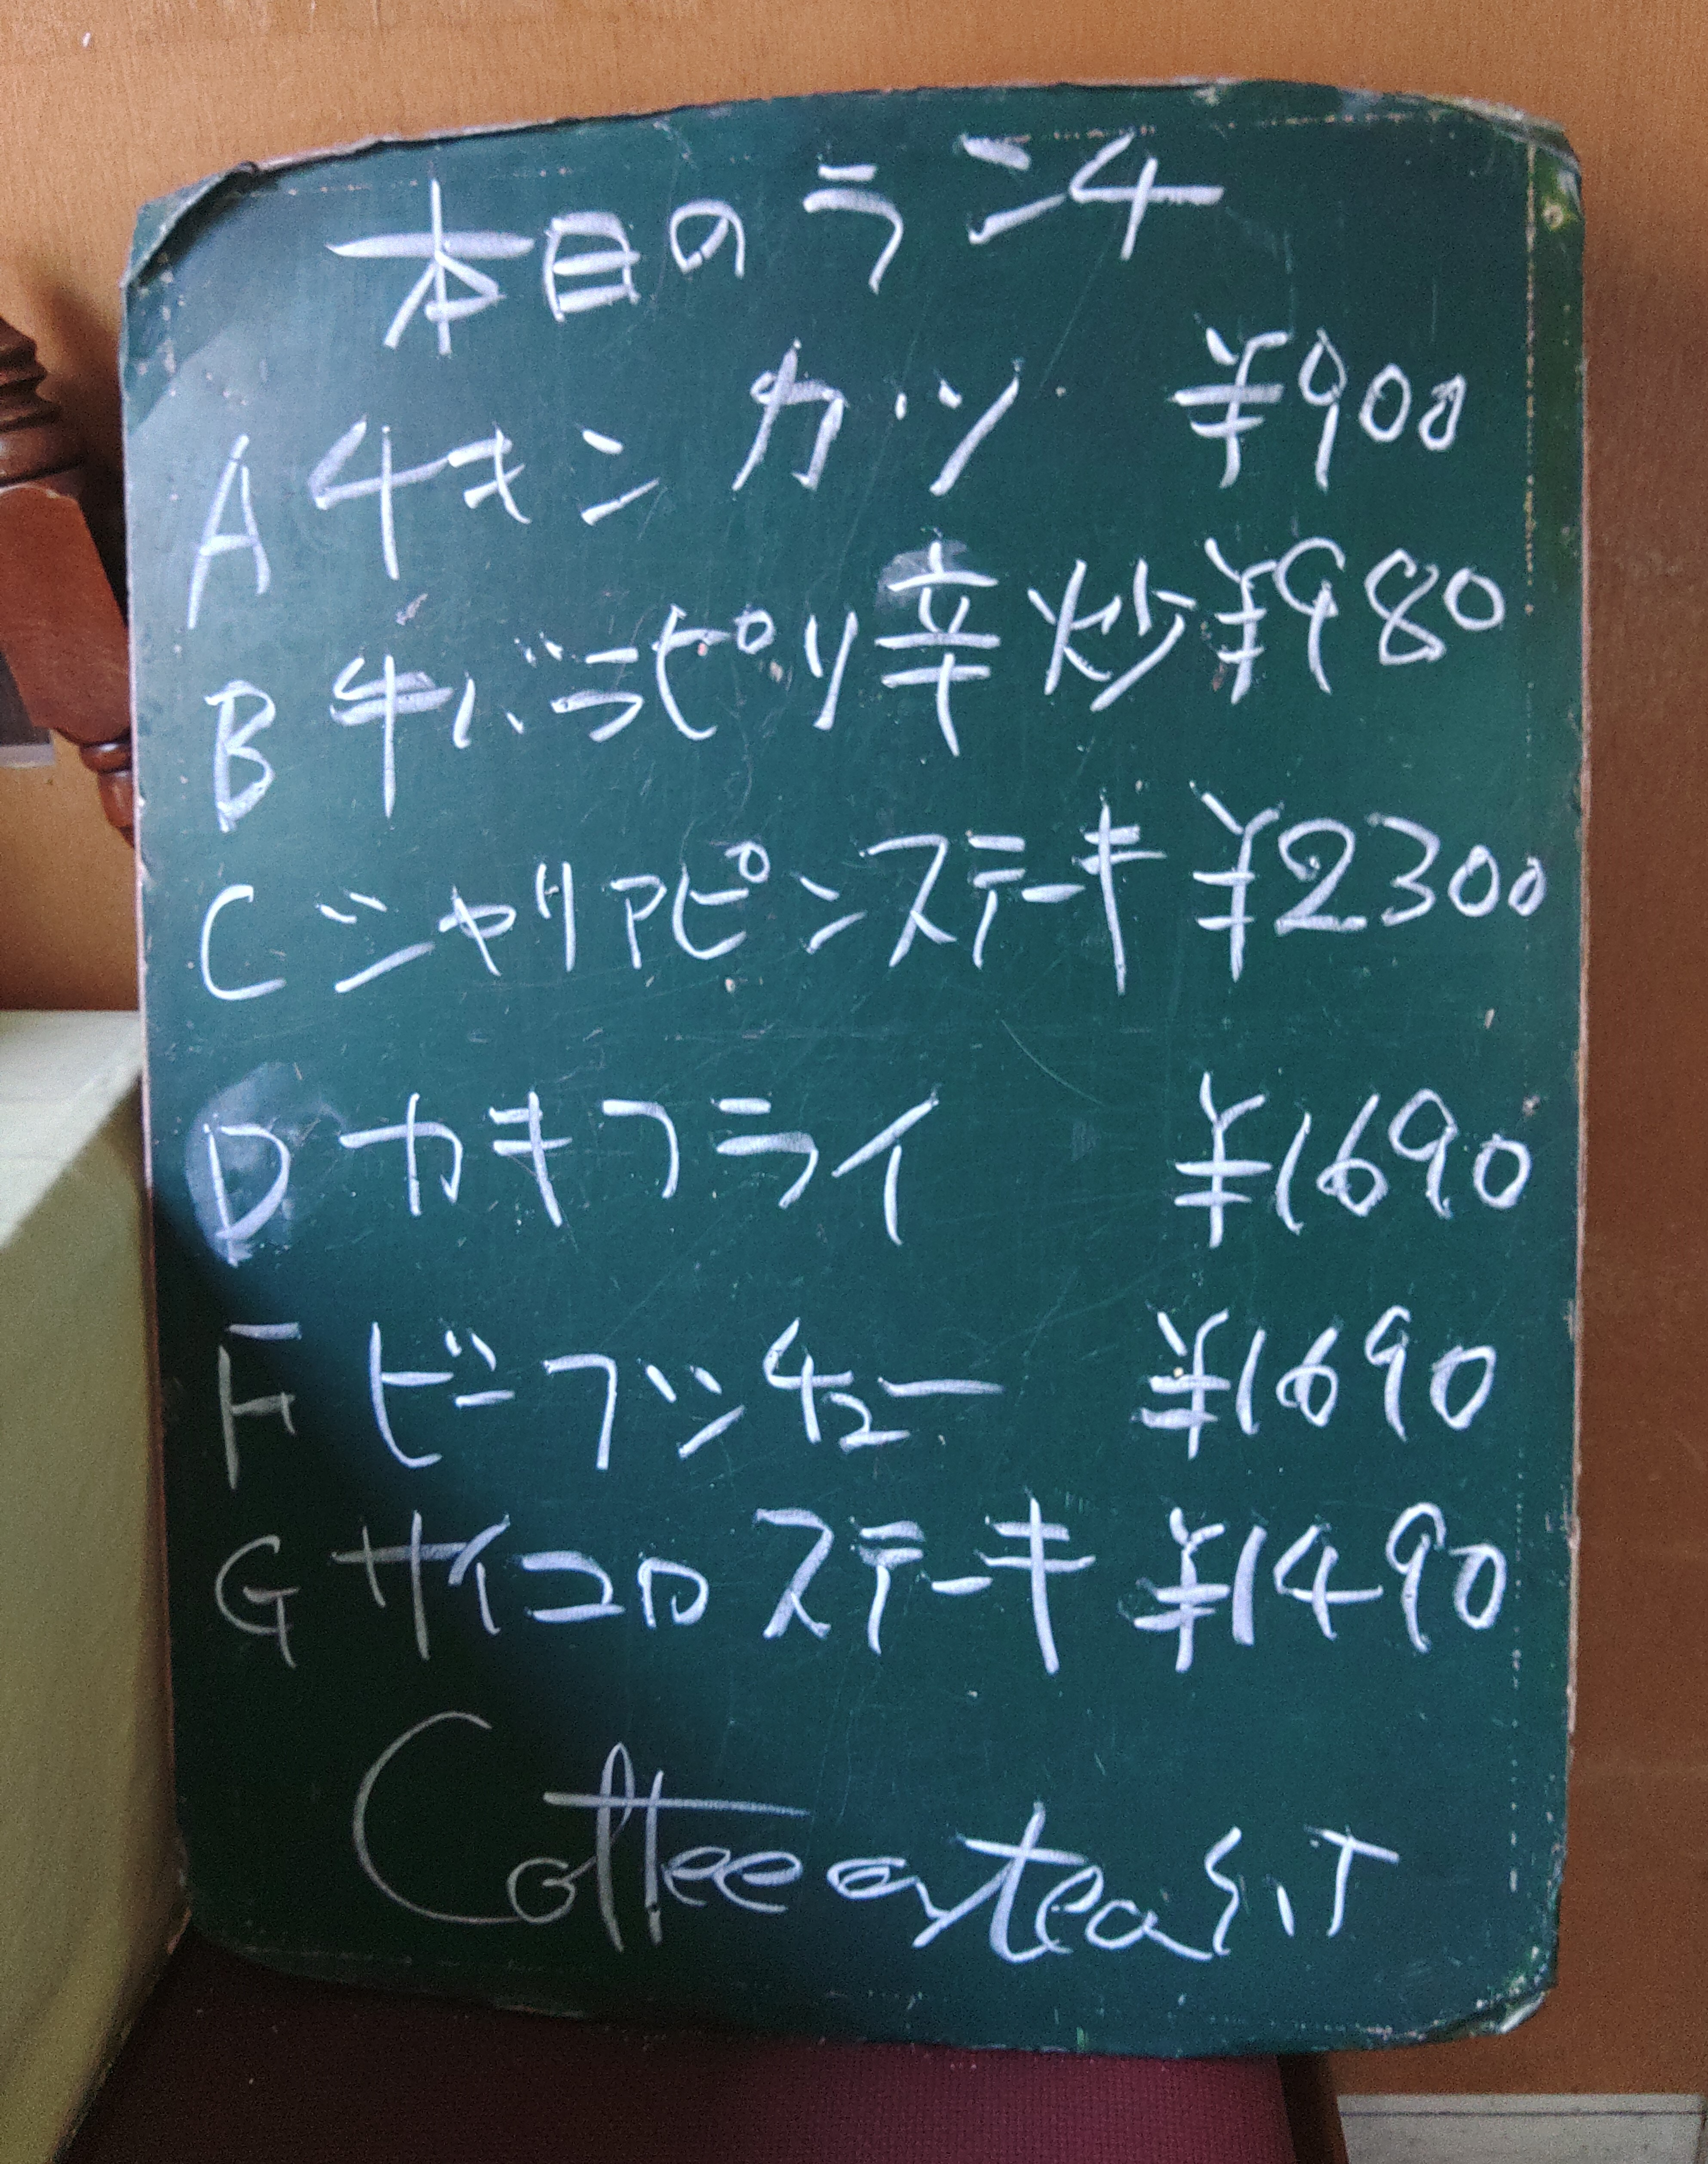 本日のランチ
A チキンカツ ¥900
B 牛バラピリ辛炒 ¥980
C シャリアピンステーキ ¥2300
D カキフライ ¥1690
F ビーフシチュー ¥1690
G サイコロステーキ ¥1490
Coffee or tea